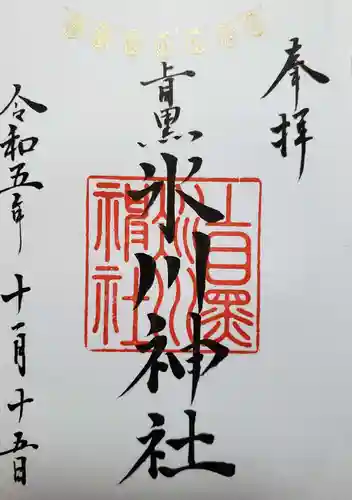 奉拝
上目黒
氷川神社
令和五年 十一月十五日
上目黒
氷川
神社